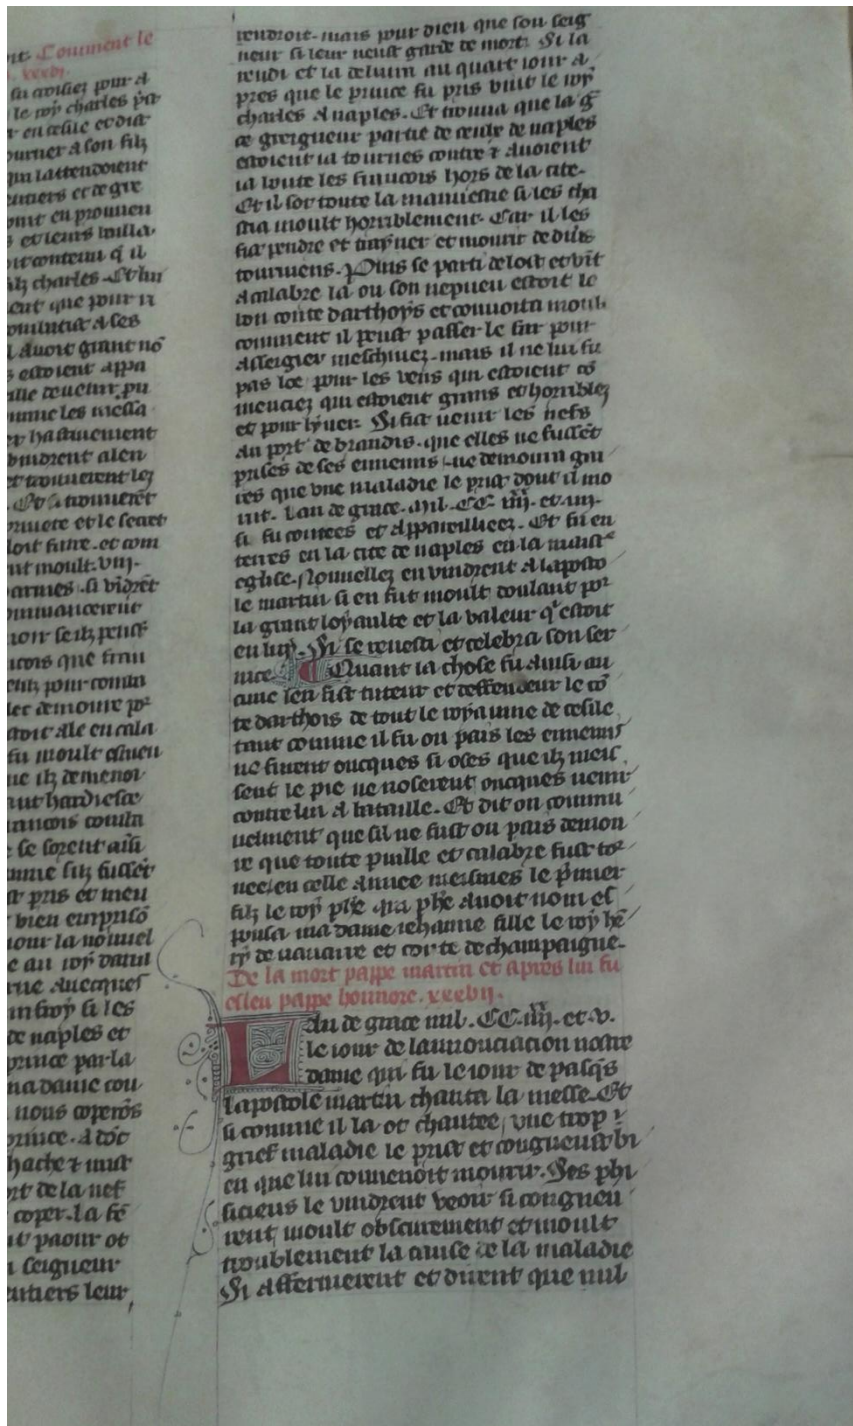 nt. Comment le
. xxxvj.
fu croisiez pour a
le roy charles pa
r en cesile et dist
ourner a son filz
qui lattendoient
entiers et de gre
ont en prouuen
s et leurs
oit contenu q il
filz charles. Et lui
ent que pour
a ses
l auoit grant no
s estoient appa
ille de uenir pu
omme les messa
er hastiuement
vindrent a len
et trouuerent les
. Et trouuerent
et le secret
loit faire. et com
nt moult. viij.
armes. si vidret
commancerent
noir se ilz
ncois que
eulz pour
ler demoure por
stoit ale en cala
fu moult
ue ilz demenoi
ant hardiesce
francois
e se sorent aisi
omme silz fusset
t pris et
bien empriso
iour la nouuel
e au roy
rne auecques
in froy si les
de naples et
prince par la
ma dame cou
nous coperos
prince. A dot
hache et mist
rt de la nef
coper. la fe
t paour ot
n seigneur
entiers leur
rendroit. mais pour dieu que son seig
neur si leur neust garde de mort. Si la
rendi et la deliura au quart iour a
pres que le prince fu pris vint le roy
charles a naples. Et trouua que la g
ce greigneur partie de ceulz de naples
estoient ia tournes contre et auoient
ia boute les francois hors de la cite.
Et il sot toute la maniere si les cha
stia moult horriblement. Car il les
fist pendre et trayner et mourir de dius
tourmens. Puis se parti de lost et vit
a calabre la ou son nepueu estoit le
bon conte darthoys et conuoita moult
comment il peust passer le far pour
assegier meschinez. mais il ne lui fu
pas loe pour les vens qui estoient co
menciez qui estoient grans et horribles
et pour lyuer. Si fist uenir les nefs
au port de brandis. que elles ne fusset
prises de ses ennemis. ne demoura gui
res que vne maladie le prist dont il mo
rut. Lan de grace. Mil. CC. iiijxx. et iiij.
si fu contees et appareilliees. Et fu en
terres en la cite de naples en la maistre
eglise. Nouuelles en vindrent a laposto
le martin si en fut moult doulant por
la grant loyaulte et la valeur q estoit
en luy. Si se reuesti et celebra son ser
uice. Quant la chose fu ainsi au
cune len fist tuteur et deffendeur le co
te darthois de tout le royaume de cesile
tant comme il fu ou pais les ennemis
ne furent oncques si oses que ilz meis
sent le pie ne noserent oncques uenir
contre lui a bataille. Et dit on commu
nelment que sil ne fust ou pais demou
re que toute puille et calabre fust tor
nee. en celle annee meismes le pmier
filz le roy phe qui phe auoit nom es
pousa ma dame iehanne fille le roy he
ry de nauarre et cote de champaigne.
De la mort pappe martin et apres lui fu
esleu pappe honnore. xxxvij.
Lan de grace mil. CC. iiijxx. et v.
le iour de lannonciacion nostre
dame qui fu le iour de pasqs
lapostole martin chanta la messe. Et
si comme il la ot chantee, vne trop
grief maladie le prist et congneust bi
en que lui conuenoit mourir. Ses phi
siciens le vindrent veoir si congneu
rent moult obscurement et moult
troublement la cause de la maladie
Si affermerent et dirent que nul